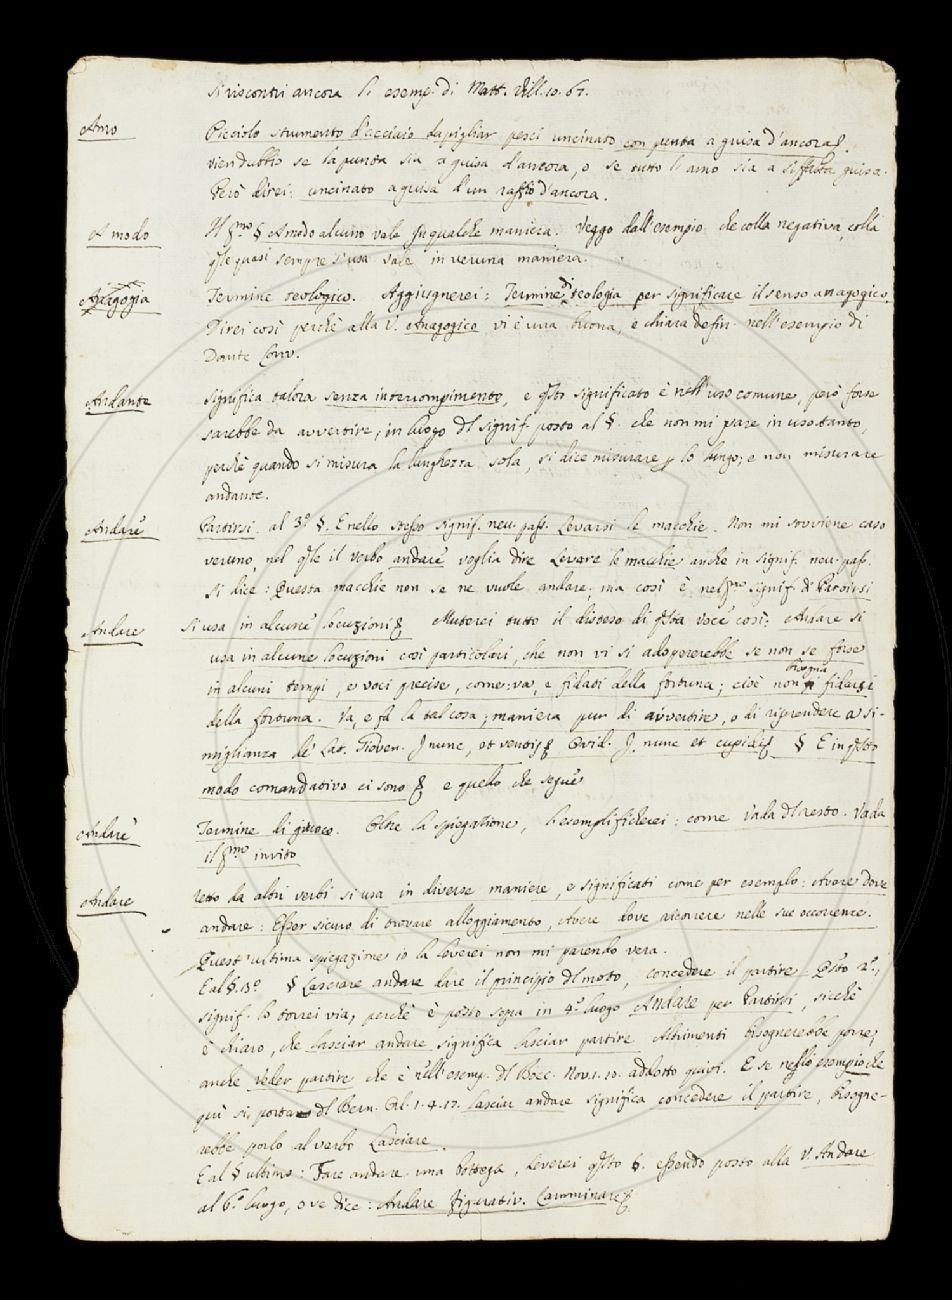 si riscontri ancora l'esemp. di Matt. Vill. 10. 67.
Amo Picciolo strumento d'acciaio da pigliar pesci uncinato con punta a guisa d'ancora §.
vien dubbio se la punta sia a guisa d'ancora, o se tutto l'amo sia a siffatta guisa.
Però direi: uncinato a guisa d'un raffio d'ancora.
A modo Il pmo § A modo alcuno vale In qualche maniera. Veggo dall'esempio che colla negativa, colla
qle quasi sempre s'usa vale in veruna maniera.
Anagogia Termine teologico. Aggiugnerei: Termine di teologia per significare il senso anagogico.
Direi così perchè alla V. Anagogico vi è una buona, e chiara defin. nell'esempio di
Dante Conv.
Andante Significa talora senza interrompimento, e qsto significato è nell'uso comune, però forse
sarebbe da avvertire; in luogo dl signif. posto al §. che non mi pare in uso tanto,
perchè quando si misura la lunghezza sola, si dice misurare p lo lungo; e non misurare
andante.
Andare Partirsi. al 3º §. E nello stesso signif. neu. pass. Levarsi le macchie. Non mi sovviene caso
veruno, nel qle il verbo andare voglia dire Levare le macchie anche in signif. neu. pass.
Si dice: Questa macchie non se ne vuole andare. ma così è nel pmo signif. di Partirsi
Andare si usa in alcune locuzioni § Muterei tutto il disteso di qsta voce così: Andare si
usa in alcune locuzioni così particolari, che non vi si adopererebbe se non se forse
in alcuni tempi, e voci precise, come: va, e fidati della fortuna; cioè non bisogna fidarsi
della fortuna. Va, e fa la tal cosa; maniera pur di avvertire, o di riprendere a si-
miglianza de' Lat. Gioven. I nunc, et ventis § Ovid. I. nunc et cupidi § § E in qsto
modo comandativo ci sono § e quello che segue
Andare Termine di giuoco. Oltre la spiegazione, l'esemplificherei: come Vada dl resto. Vada
il pmo invito
Andare retto da altri verbi si usa in diverse maniere, e significati come per esemplo: Avere dove
andare: Esser sicuro di trovare alloggiamento, Avere dove ricorrere nelle sue occorrenze.
Quest'ultima spiegazione io la leverei non mi parendo vera.
E al §. 13º § Lasciare andare dare il principio dl moto, concedere il partire. Qsto 2º,
signif. lo torrei via, perchè è posto sopra in 4º luogo Andare per Partirsi, sicchè
è chiaro, che lasciar andare significa lasciar partire. Altrimenti bisognerebbe porre,
anche veder partire che è nell'esemp. dl Bocc. Nov. 1. 10. addotto quivi. E se nello esempio che
quì si porta dl Bern. Orl. 1. 4. 17. lasciar andare significa concedere il partire, bisogne-
rebbe porlo al verbo Lasciare.
E al § ultimo: Fare andare una bottega, leverei qsto §. essendo posto alla V. Andare
al 6º luogo, ove dice: Andare figurativ. Camminare §